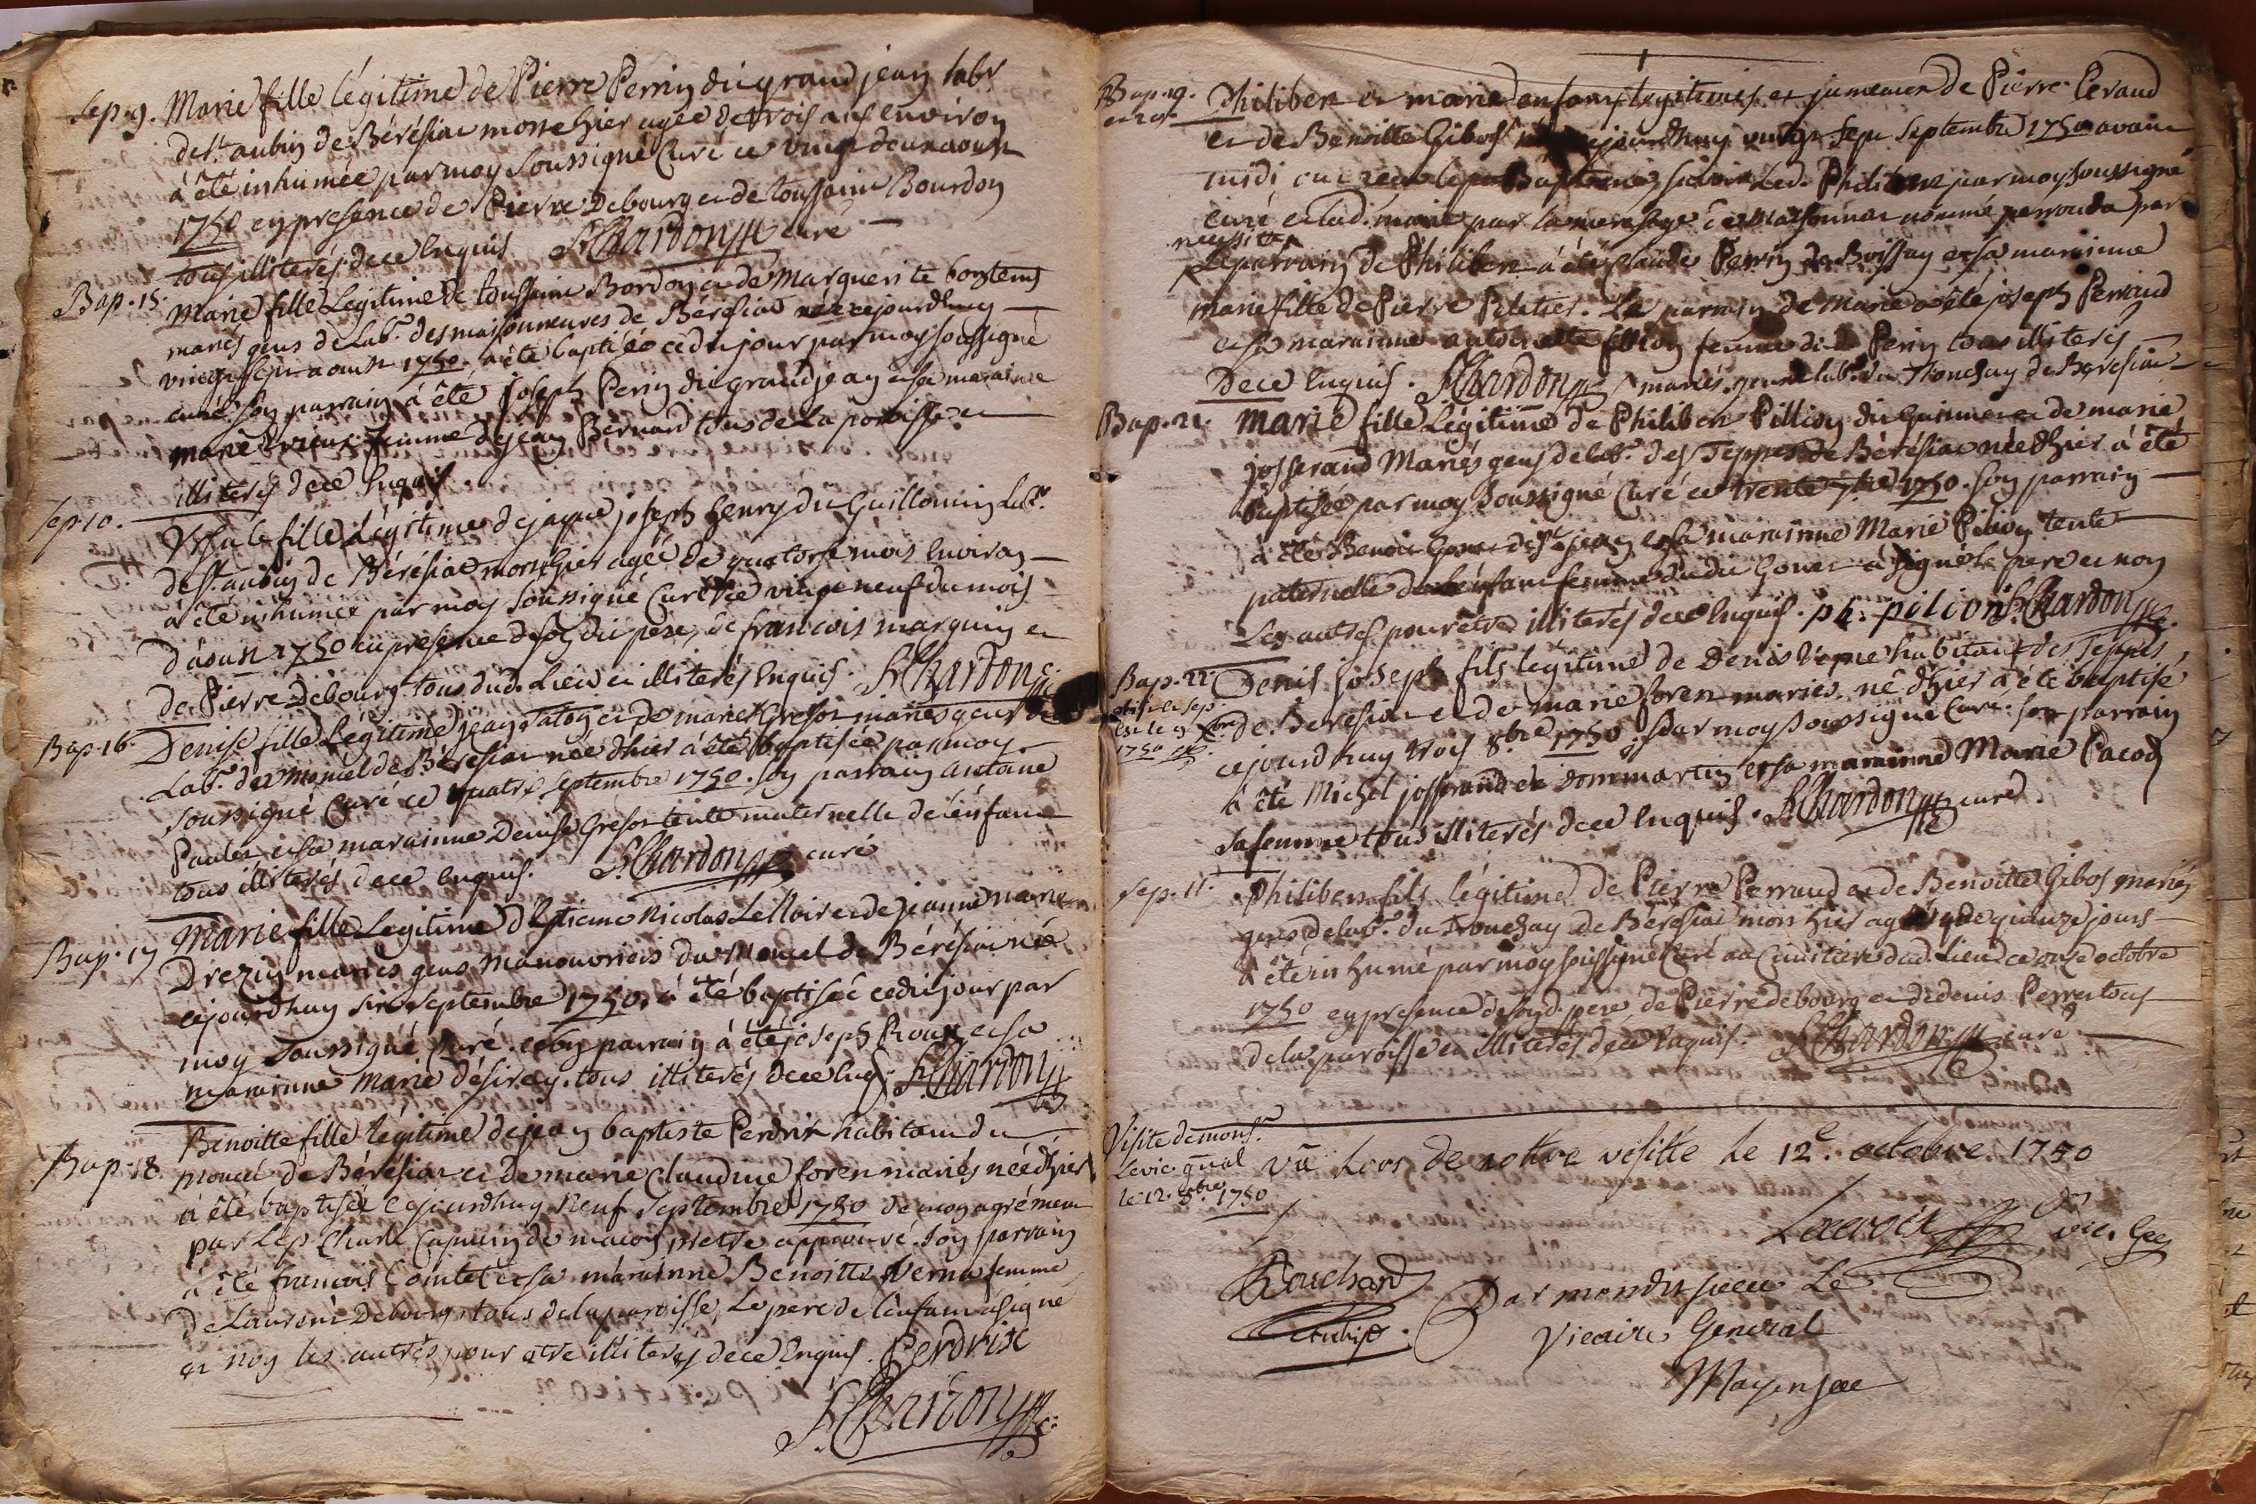 Sep. 9. Marie fille légitime de Pierre Perrin dit grand jean labr
de St. aubin de Bérésiat morte hier agée de trois ans environ
à été inhumée par moy soussigné Curé ce vingt deux aoust
1750 en presence de Pierre Debourg et de toussaint Bourdon
tous illiterés de ce Enquis Chardon curé
Bap. 15. Marie fille Legitime de toussaint Bordon et de Marguerite bontems
mariés gens de Lab.r des maisonneuves de Bérésiat née cejourdhuy
vingt sept aoust 1750 a été baptisée ce du jour par moy soussigné
curé. son parrain à été joseph Perrin dit grand jean et sa maraine
marie femme de jean Bernard tous de La paroisse et
illiterés de ce Enquis
Sep. 10. fille Légitime de jaque joseph henry du Guillomin Labr.
de St. aubin de Bérésiat morte hier agée de quatorse mois Environ
a été inhumée par moy soussigné Curé ce vingt neuf du mois
d'aoust 1750 en presence de son dit père, de francois marguin et
de Pierre Debourg tous dud. Lieu et illiterés Enquis. Chardon c.
Bap. 16. Denise fille Légitime de jean et de marie Gresor mariés gens de
Lab.r du moncel de Bérésiat née d'hier à été baptisée par moy
soussigné Curé ce quatre septembre 1750. son parrain antoine
Paulet et sa marainne Denise Gresor tente maternelle de l'enfant
tous illiterés de ce enquis. Chardon curé
Bap. 17 Marie fille Legitime d'Etiene Nicolas Lelloire et de jeanne marie
Drezin mariés gens manouvriers du Moncel de Bérésiat née
cejourdhuy six septembre 1750. à été baptisée ce du jour par
moy soussigné Curé. son parrain à été joseph Roux et sa
marainne Marie désirey. tous illiterés de ce Enq. Chardon
Bap. 18. Benoitte fille légitime de jean baptiste Perdrix habitant du
moncel de Bérésiat et de marie Claudine foren mariés née d'hier
à été baptisée cejourdhuy Neuf septembre 1750 de mon agrément
par Le p. Charle Capucin de macon pretre approuvé. son parrain
à été francois Comtet et sa marainne Benoitte Verne femme
de Laurent Debourg, tous de la paroisse, Le pere de l'enfant à signé
et non les autres pour etre illiterés de ce Enquis. Perdrix
Chardon c.
Bap. 19. Philibert et marie enfans légitimes et jumeaux de Pierre Peraud
et 20. et de Benoitte Gibos cejourdhuy vingt sept septembre 1750 avant
midi ont recu le Baptème, savoir Led. Philibert par moy soussigné
curé et lad. marie par la mere sage de nommée perrouda par
necessité
Le parrain de Philibert à été Claude Perrin de Boissay et sa marainne
marie fille de Pierre Peletier. Le parrain de Marie a été joseph Perraud
et sa marainne antoinette fillion femme de Perrin tous illiterés
De ce Enquis. Chardon mariés gens de lab.r du Tronchay de Bérésiat
Bap. 21. Marie fille Légitime de Philibert Pillion dit Guinner et de marie
josserand Mariés gens de lab.r des Teppes de Bérésiat née d'hier à été
baptisée par moy soussigné Curé ce trente 7bre 1750. son parrain
à été Benoit Gonet de St. jean et sa marainne Marie Pilion tente
paternelle de l'enfant femme du du Gonet. à signé le pere et non
Les autres pour etre illiterés de ce Enquis. ph. pilion Chardon c.
Bap. 22. Denis joseph fils legitime de Denis habitant des Teppes
de Bérésiat et de marie foren mariés. né d'hier à été baptisé
cejourdhuy trois 8bre 1750 par moy soussigné Curé. son parrain
1750
à été Michel josserand de Dommartin et sa marainne Marie Pacod
sa femme tous illiterés de ce Enquis. Chardon curé.
Sep. 11. Philibert fils légitime de Pierre Perraud et de Benoitte Gibos mariés
gens de lab.r du Tronchay de Bérésiat mort hier agé de quinze jours
à été inhumé par moy soussigné Curé au Cimitiere dud. Lieu ce onze octobre
1750 en presence de son d. pere, de Pierre debourg et de denis Perret tous
de la paroisse et illiterés de ce Enquis. Chardon curé
Visite de mons.r
Le vic. gnal
le 12. 8bre 1750
vü Lors de nottre visitte le 12e. octobre 1750
Lacroix vic. Gen.
Bouchard
archip.
Par mondit sieur Le
Vicaire General